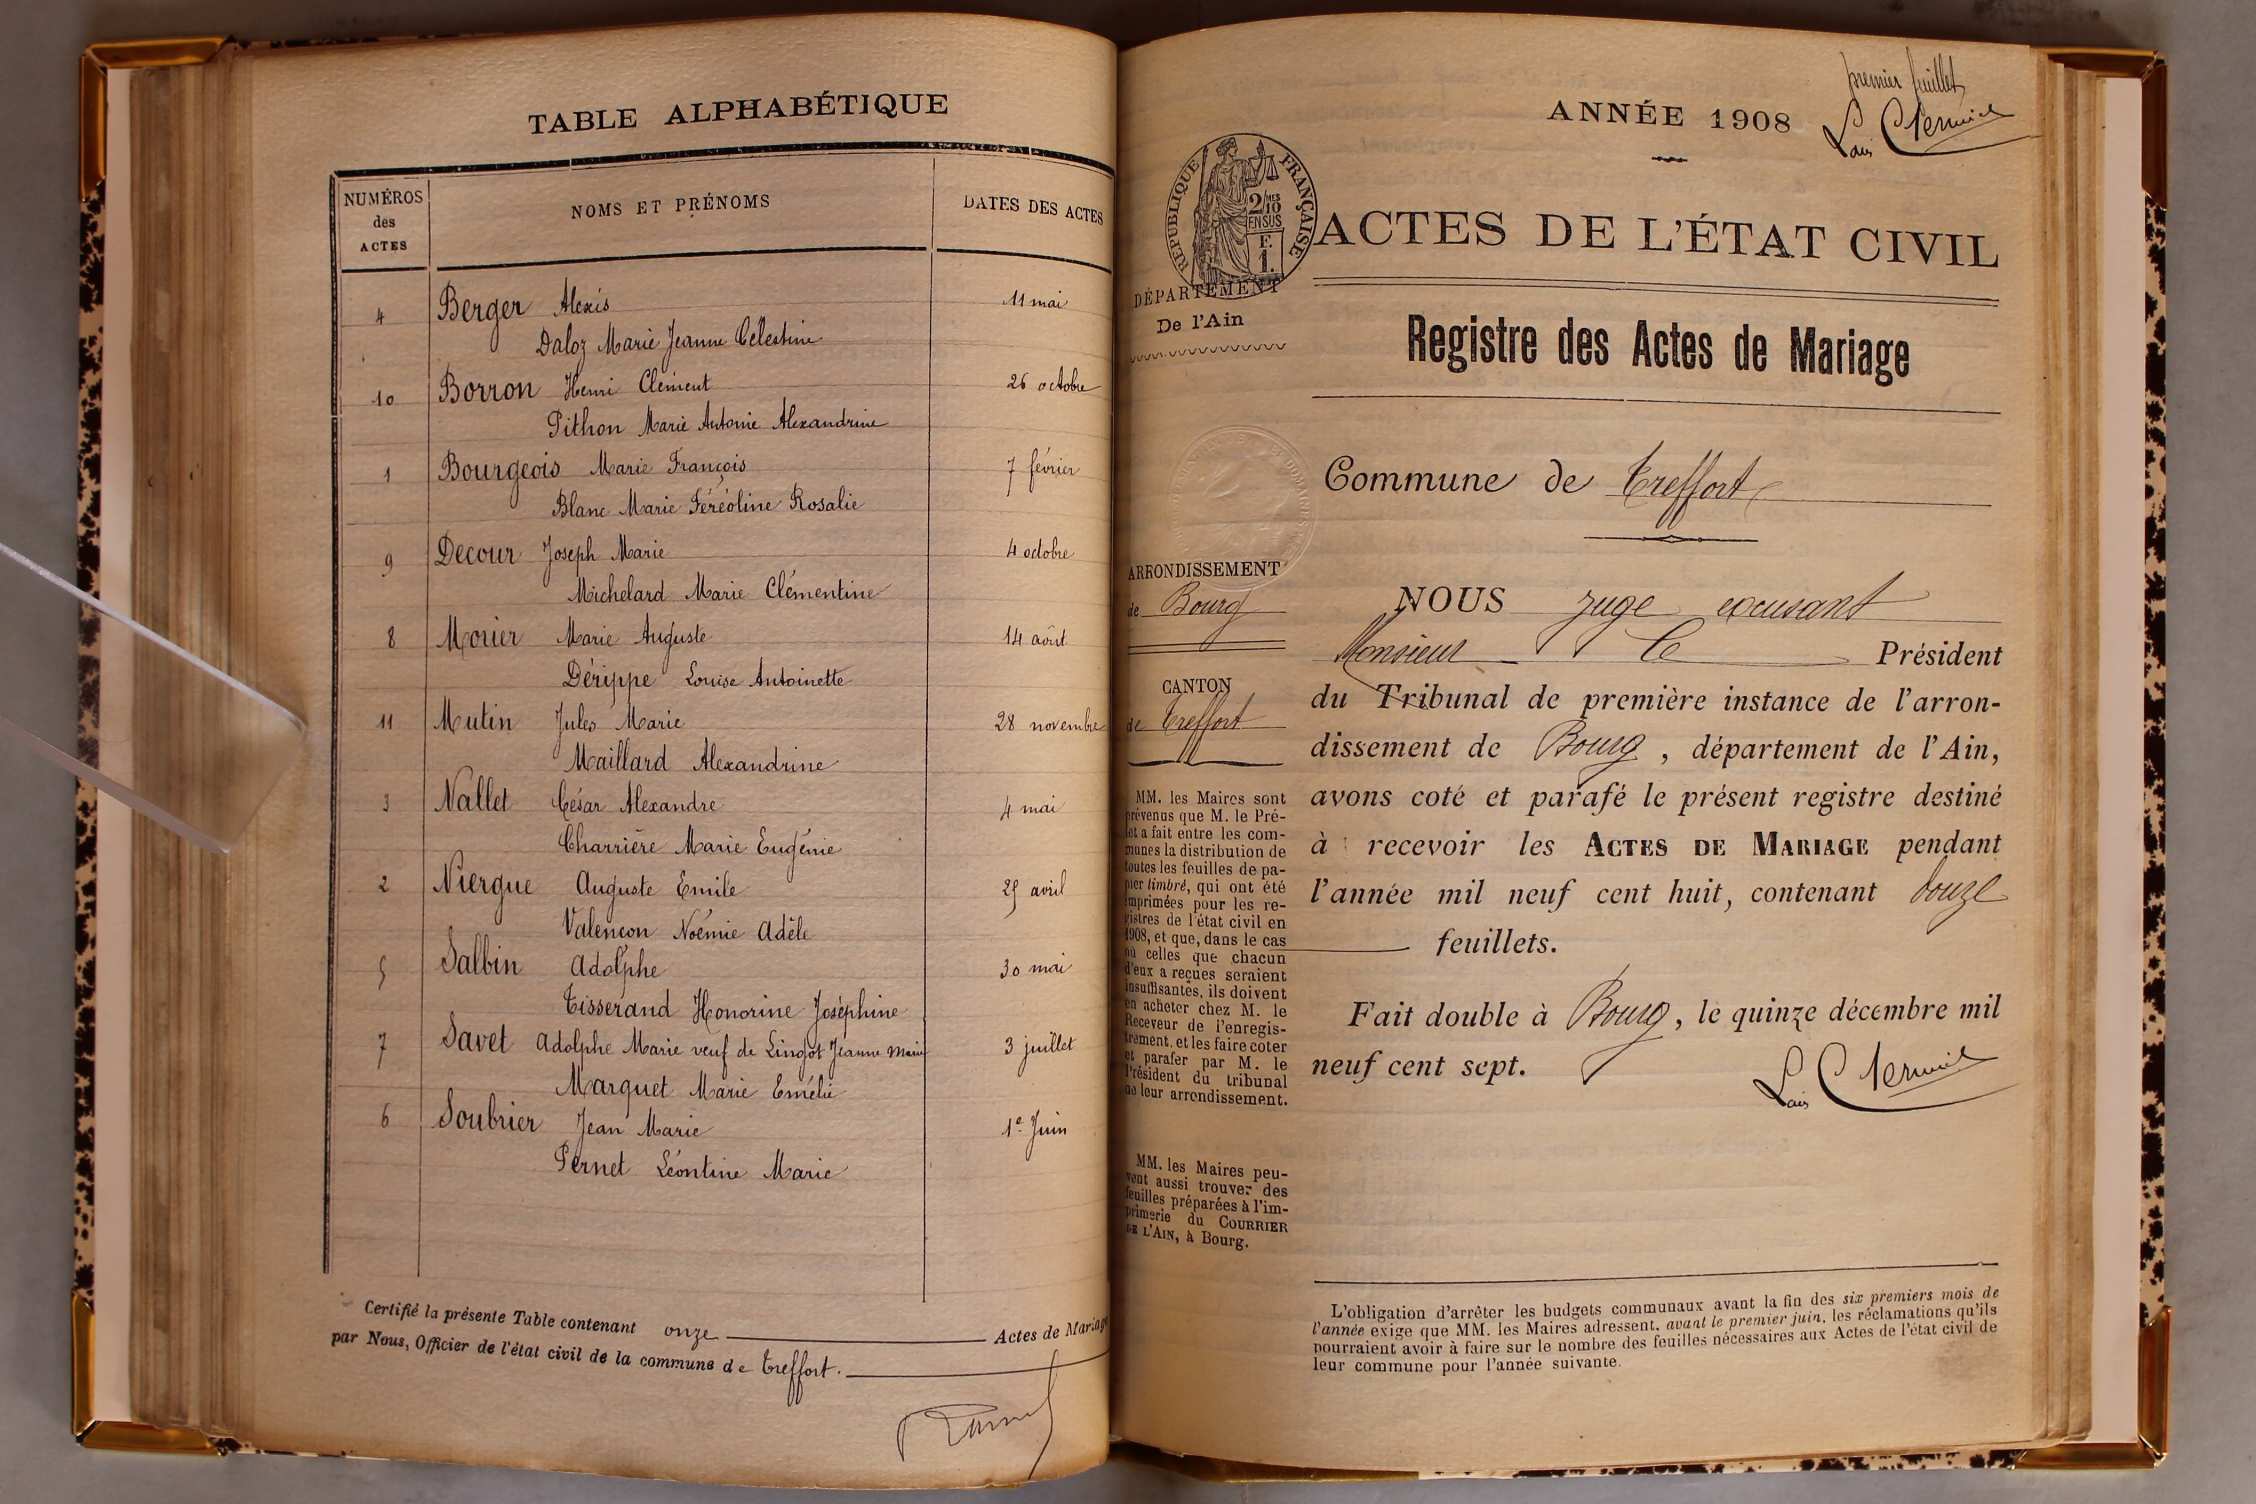 TABLE ALPHABÉTIQUE
NUMÉROS
des
ACTES
NOMS ET PRÉNOMS
DATES DES ACTES
4 Berger Alexis 11 mai
Daloz Marie Jeanne Célestine
10 Borron Henri Clément 26 octobre
Pithon Marie Antonie Alexandrine
1 Bourgeois Marie François 7 février
Blanc Marie Féréoline Rosalie
9 Decour Joseph Marie 4 octobre
Michelard Marie Clémentine
8 Morier Marie Auguste 14 août
Dérippe Louise Antoinette
11 Mutin Jules Marie 28 novembre
Maillard Alexandrine
3 Nallet César Alexandre 4 mai
Charrière Marie Eugénie
2 Niergue Auguste Emile 25 avril
Valençon Noémie Adèle
5 Salbin Adolphe 30 mai
Tisserand Honorine Joséphine
7 Savet Adolphe Marie veuf de Lingot Jeanne Marie 3 juillet
Marquet Marie Emélie
6 Soubrier Jean Marie 1e Juin
Pernet Léontine Marie
Certifié la présente Table contenant onze Actes de Mariage
par Nous, Officier de l'état civil de la commune de Treffort.
premier feuillet
ANNÉE 1908
RÉPUBLIQUE FRANÇAISE
2/10 MES
EN SUS
F.
1.
ACTES DE L'ÉTAT CIVIL
DÉPARTEMENT
De l'Ain
Registre des Actes de Mariage
Commune de Treffort
ARRONDISSEMENT
de Bourg
CANTON
de Treffort
NOUS juge excusant
Monsieur le Président
du Tribunal de première instance de l'arron-
dissement de Bourg, département de l'Ain,
avons coté et parafé le présent registre destiné
à recevoir les ACTES DE MARIAGE pendant
l'année mil neuf cent huit, contenant douze
feuillets.
Fait double à Bourg, le quinze décembre mil
neuf cent sept.
MM. les Maires sont
prévenus que M. le Pré-
fet a fait entre les com-
munes la distribution de
toutes les feuilles de pa-
pier timbré, qui ont été
imprimées pour les re-
gistres de l'état civil en
1908, et que, dans le cas
où celles que chacun
d'eux a reçues seraient
insuffisantes, ils doivent
en acheter chez M. le
Receveur de l'enregis-
trement, et les faire coter
et parafer par M. le
Président du tribunal
de leur arrondissement.
MM. les Maires peu-
vent aussi trouver des
feuilles préparées à l'im-
primerie du COURRIER
DE L'AIN, à Bourg.
L'obligation d'arrêter les budgets communaux avant la fin des six premiers mois de
l'année exige que MM. les Maires adressent, avant le premier juin, les réclamations qu'ils
pourraient avoir à faire sur le nombre des feuilles nécessaires aux Actes de l'état civil de
leur commune pour l'année suivante.